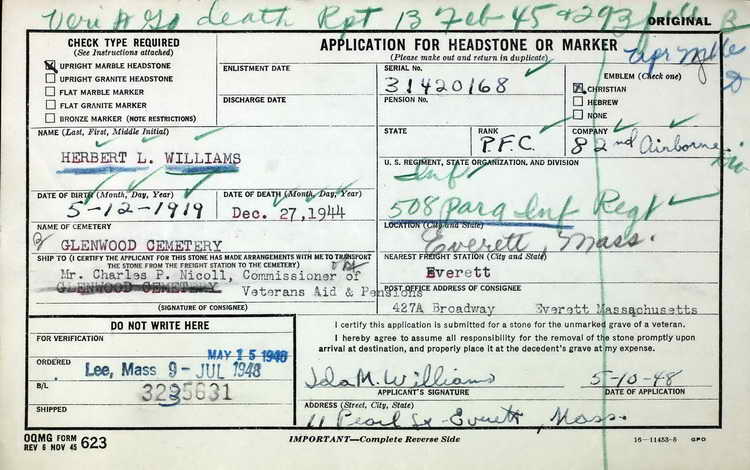 Veri A Go death Rpt 13 Feb 45 & 293
ORIGINAL
CHECK TYPE REQUIRED
(See Instructions attached)
UPRIGHT MARBLE HEADSTONE
UPRIGHT GRANITE HEADSTONE
FLAT MARBLE MARKER
FLAT GRANITE MARKER
BRONZE MARKER (NOTE RESTRICTIONS)
APPLICATION FOR HEADSTONE OR MARKER
(Please make out and return in duplicate)
ENLISTMENT DATE
DISCHARGE DATE
SERIAL No.
31420168
PENSION No.
EMBLEM (Check one)
CHRISTIAN
HEBREW
NONE
STATE
RANK
P.F.C.
COMPANY
82nd Airborne
Div
NAME (Last, First, Middle Initial)
HERBERT L. WILLIAMS
U. S. REGIMENT, STATE ORGANIZATION, AND DIVISION
Inf
508 Para Inf Regt
DATE OF BIRTH (Month, Day, Year)
5-12-1919
DATE OF DEATH (Month, Day, Year)
Dec. 27, 1944
NAME OF CEMETERY
GLENWOOD CEMETERY
LOCATION (City and State)
Everett, Mass.
SHIP TO (I CERTIFY THE APPLICANT FOR THIS STONE HAS MADE ARRANGEMENTS WITH ME TO TRANSPORT
THE STONE FROM THE FREIGHT STATION TO THE CEMETERY)
Mr. Charles P. Nicoll, Commissioner of
GLENWOOD CEMETERY Veterans Aid & Pensions
(SIGNATURE OF CONSIGNEE)
NEAREST FREIGHT STATION (City and State)
Everett
POST OFFICE ADDRESS OF CONSIGNEE
427A Broadway Everett Massachusetts
DO NOT WRITE HERE
FOR VERIFICATION
MAY 15 1948
ORDERED
Lee, Mass 9 - JUL 1948
B/L
3235631
SHIPPED
I certify this application is submitted for a stone for the unmarked grave of a veteran.
I hereby agree to assume all responsibility for the removal of the stone promptly upon
arrival at destination, and properly place it at the decedent's grave at my expense.
Ida M. Williams
5-10-48
APPLICANT'S SIGNATURE
DATE OF APPLICATION
ADDRESS (Street, City, State)
11 Pearl St - Everett, Mass.
OQMG FORM
REV 6 NOV 45
623
IMPORTANT—Complete Reverse Side
16-11453-5 GPO